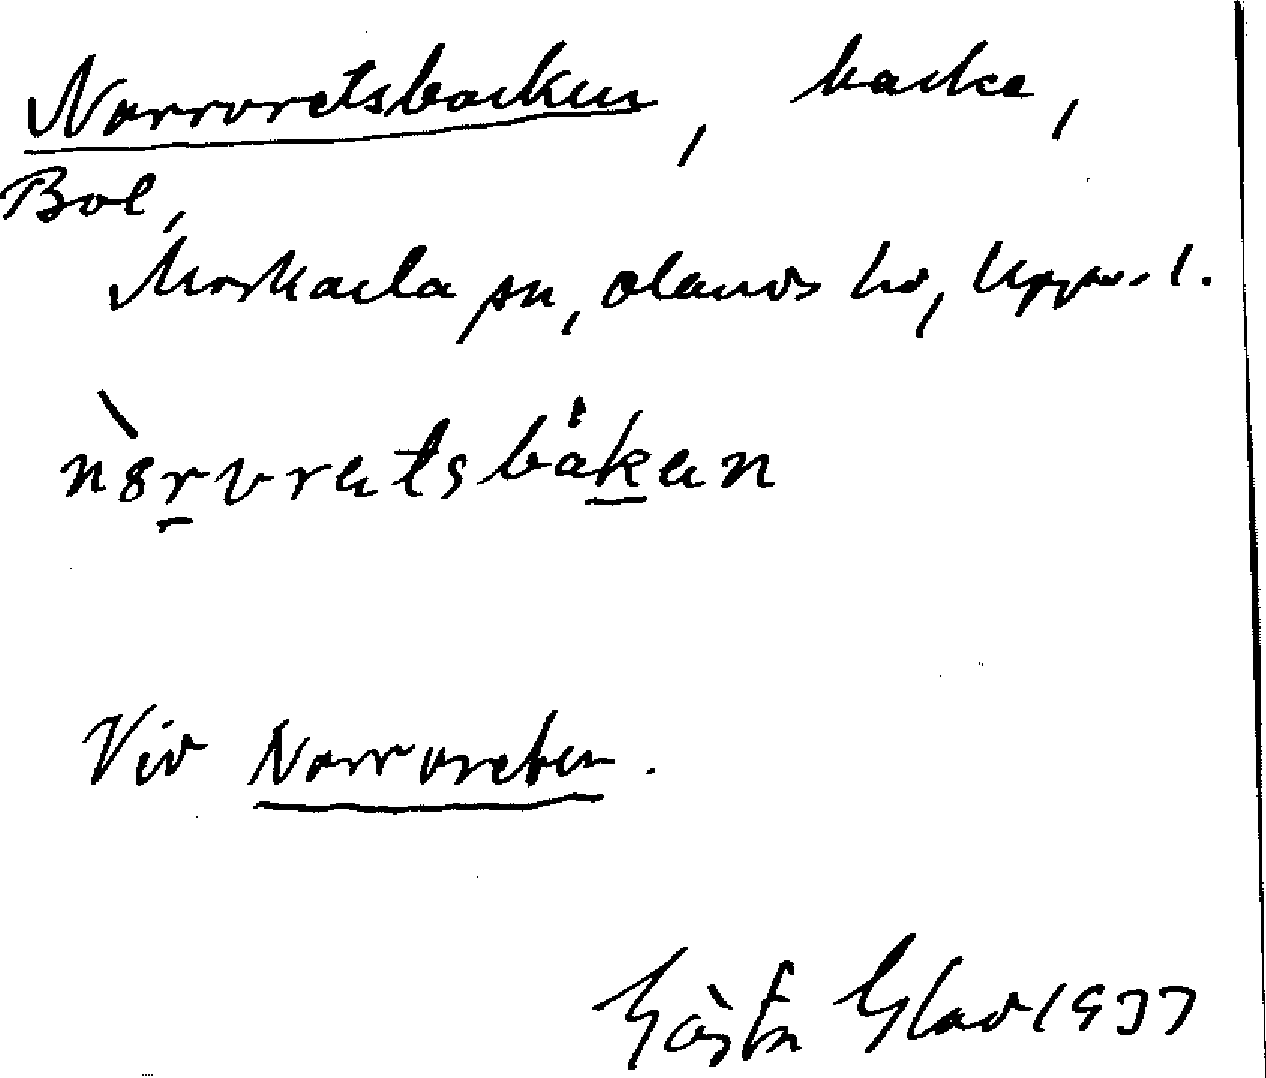 Norrvretsbacken, backe,
Bol,
Morkarla sn, Olands hd, Upps. l.
nòrvretsbaken
Vid Norrvreten.
Gösta Glad 1937